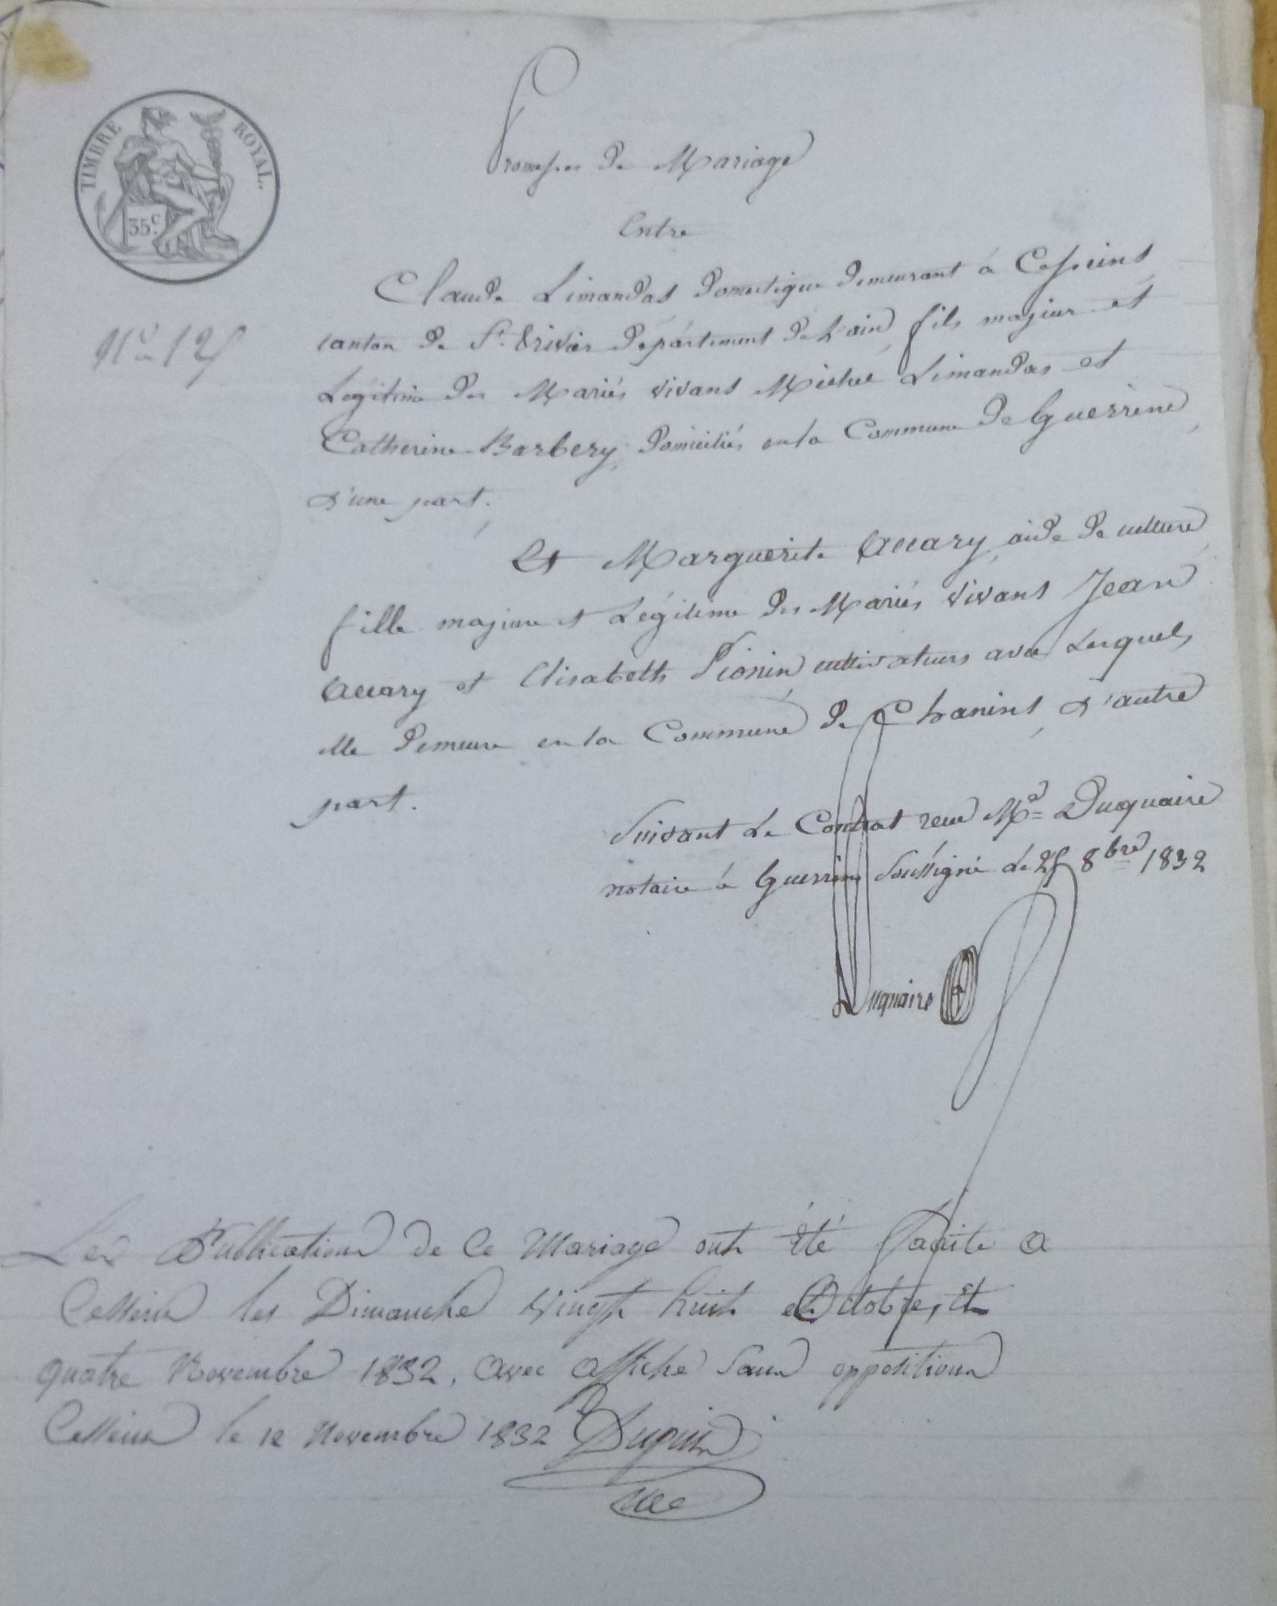 TIMBRE ROYAL.
35 c.
Promesses de Mariage
Entre
Claude Limandas domestique demeurant à Cesseins
canton de St. Trivier département de l'ain, fils majeur et
Légitime des Mariés vivans Michel Limandas et
Catherine Barbery, domiciliés en la Commune de Guerreins,
d'une part.
Et Marguerite Accary, aide de culture,
fille majeure et Légitime des Mariés vivans Jean
Accary et Elisabeth Pionin, cultivateurs avec Lesquels
elle demeure en la Commune de Chanins, d'autre
part.
Suivant Le Contrat reçu Me Duquaire
notaire à Guerreins soussigné Le 25 8bre 1832
Duquaire
Les Publications de Ce Mariage ont été faite a
Cesseins les Dimanche vingt huit Octobre, Et
quatre Novembre 1832, avec affiche sans opposition
Cesseins le 12 Novembre 1832
N° 125